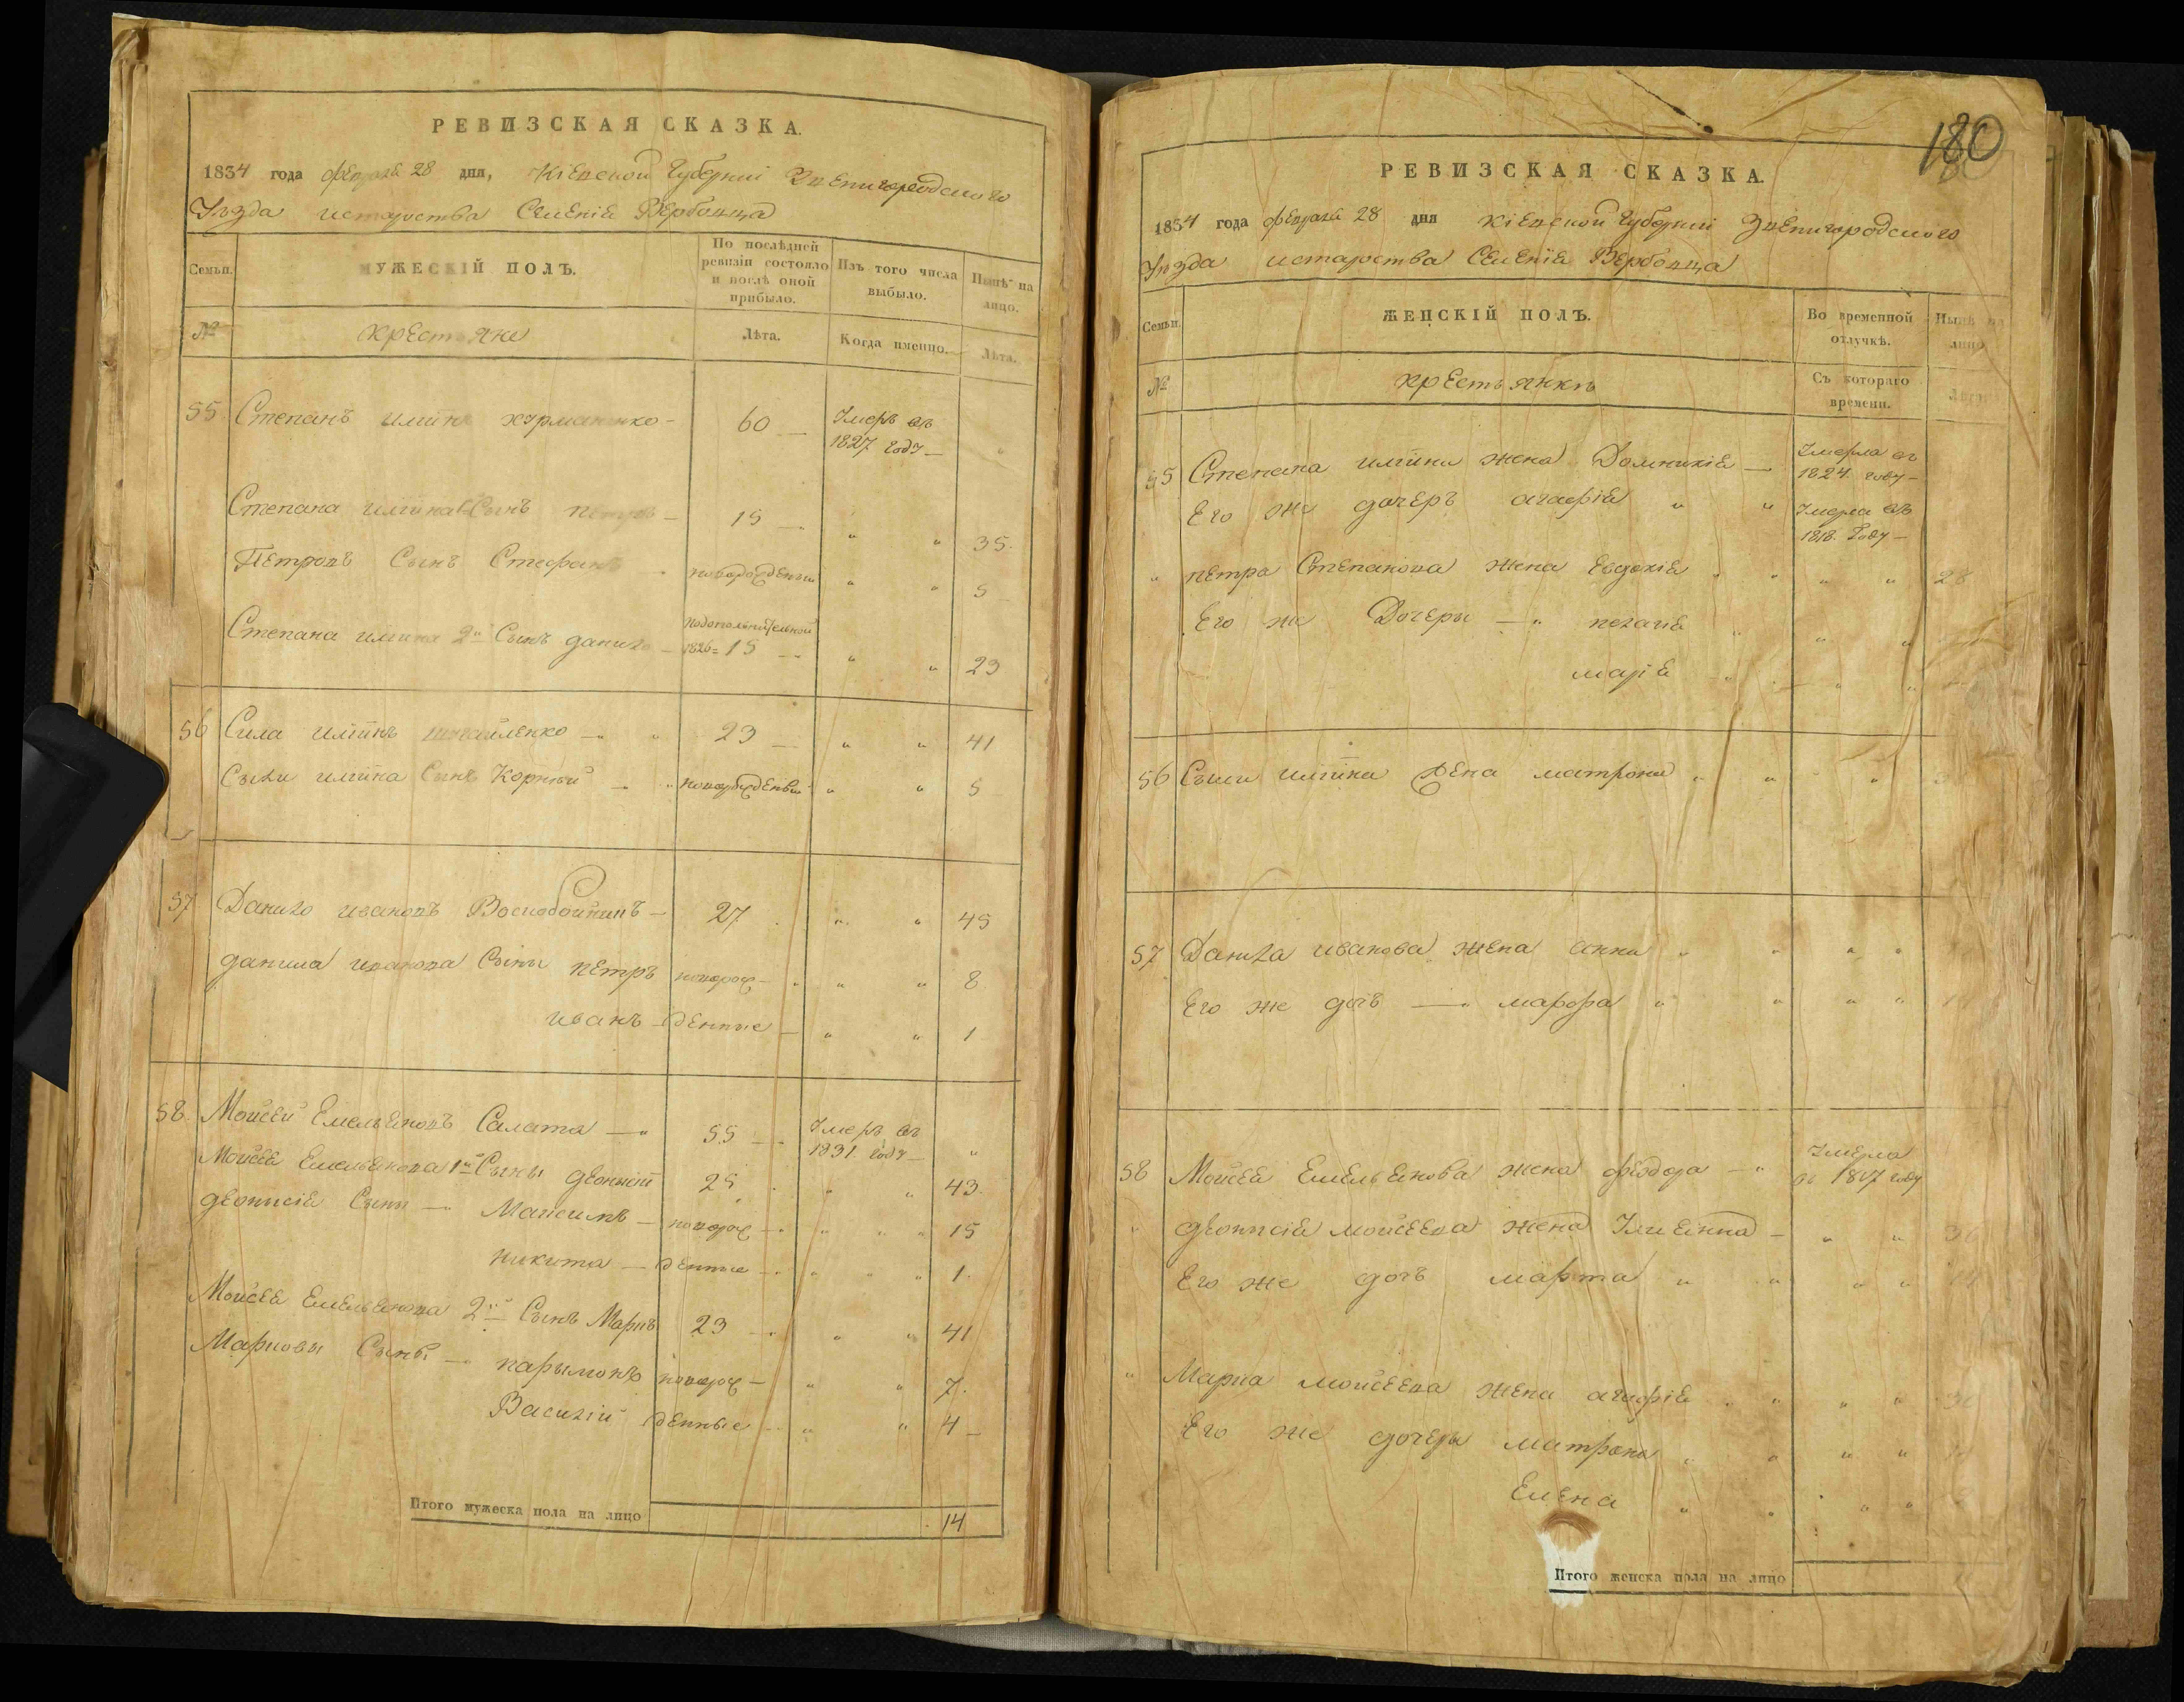 РЕВИЗСКАЯ СКАЗКА.
1834 года февраля 28 дня, Кіевской Губерніи Звенигородского
Уезда староства Селеніе Вербовца
Семьи.
МУЖЕСКІЙ ПОЛЪ.
По послѣдней ревизіи состояло и послѣ оной прибыло.
Изъ того числа выбыло.
Нынѣ на лицо.
№
крестьяне
Лѣта.
Когда именно.
Лѣта.
55 Степанъ илiинъ 60 Умеръ въ
1827 году
Степана илiина Сынъ Петръ 15 " " 35.
Петровъ Сынъ Стефанъ новорожденный " " 5
Степана илiина 2й Сынъ данило
1826 = 15 " " 23
56 Сила илiинъ 23 " " 41
Силы илiина Сынъ Корнѣй новорожденный " " 5
57 Данило ивановъ 27 " " 45
данила иванова Сыны петръ новорож " " 8
иванъ денные " " 1
58. Мойсей Емельяновъ Салата 55 Умеръ въ
1831 году "
Мойсея Емельянова 1й Сынъ деонисій 25 " " 43.
деонисія Сыны Максимъ новорож " " 15
никита денные " " 1.
Мойсея Емельянова 2й Сынъ Маркъ 23 " " 41
Марковы Сыны парымонъ новорож " " 7.
Василій денные " " 4
Итого мужеска пола на лицо 14
180
РЕВИЗСКАЯ СКАЗКА.
1834 года февраля 28 дня Кіевской Губерніи Звенигородского
Уезда староства Селеніе Вербовца
Семьи.
ЖЕНСКІЙ ПОЛЪ.
Во временной отлучкѣ.
Нынѣ на лицо
№
крестьянки
Съ котораго времени.
Лѣта.
55 Степана илiина жена Домникія Умерла въ
1824 году
Его же дочеръ агафія " " Умерла въ
1818 году
" петра Степанова жена Евдокія " " " " 28
Его же Дочеры пелагія " "
марія " "
56 Силы илiина жена матрона " " "
57 Данила иванова жена анна " " " "
Его же дочь марфа " " " "
58 Мойсея Емельянова жена феодора Умерла
въ 1817 году
деонисія мойсеева жена " "
Его же дочь марта " " " "
" Марка мойсеева жена агафія " " " "
Его же дочеры матрона " " " "
Елена " " " "
Итого женска пола на лицо